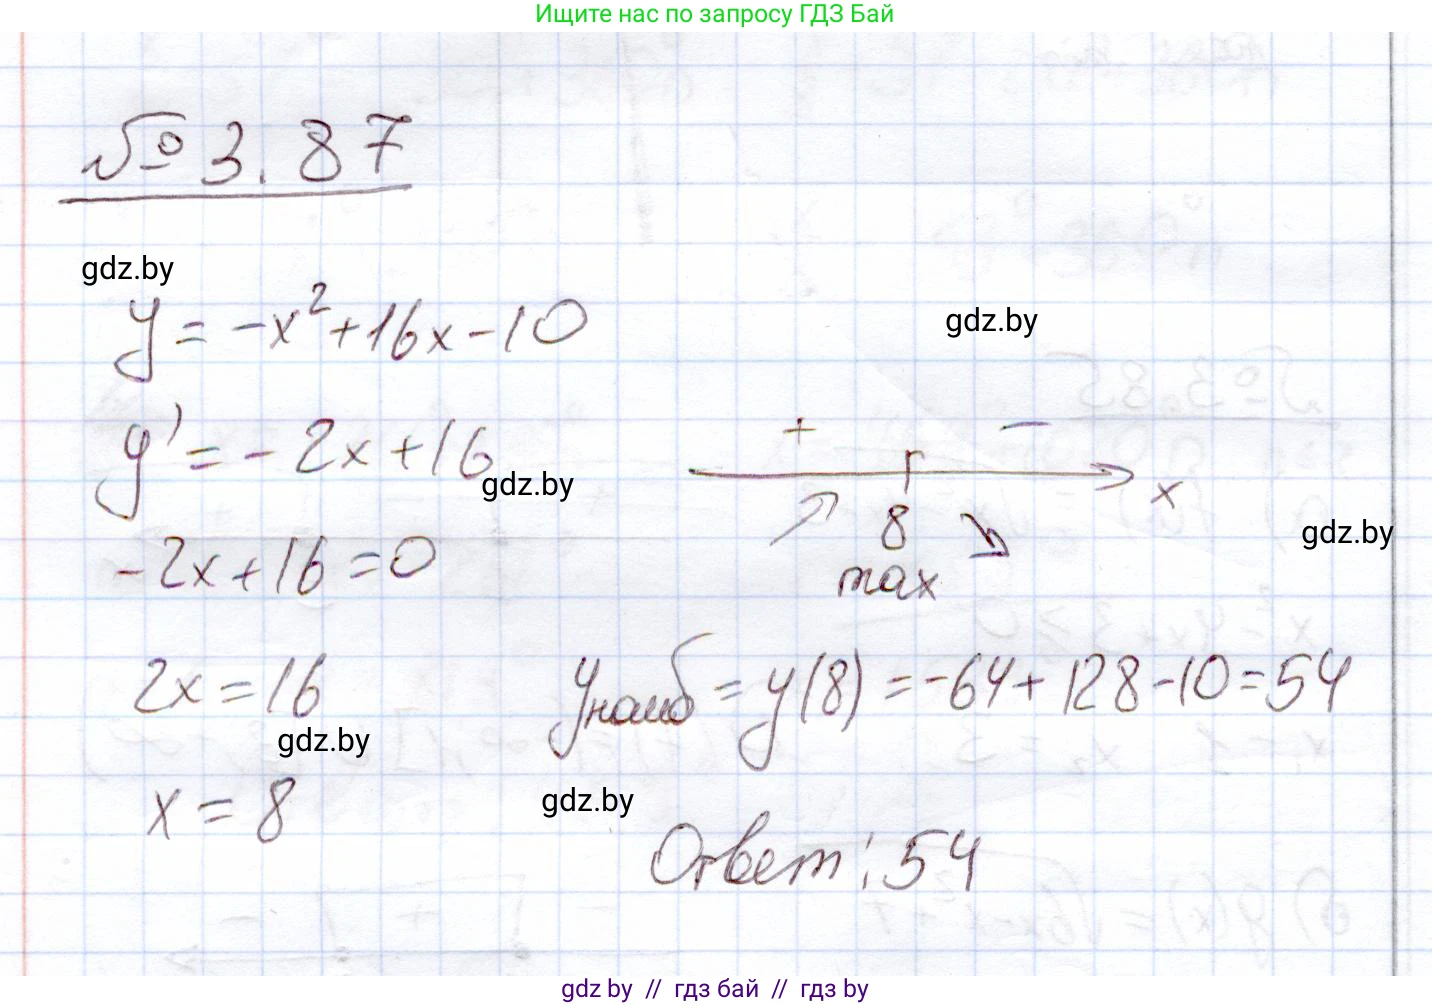 Ищите нас по запросу ГДЗ Бай
№ 3.87
gdz.by
y = -x² + 16x - 10
gdz.by
y' = -2x + 16
gdz.by
+ −
8 x
max
gdz.by
-2x + 16 = 0
2x = 16
gdz.by
x = 8
yнаиб = y(8) = -64 + 128 - 10 = 54
gdz.by
Ответ: 54
gdz.by // гдз бай // гдз by